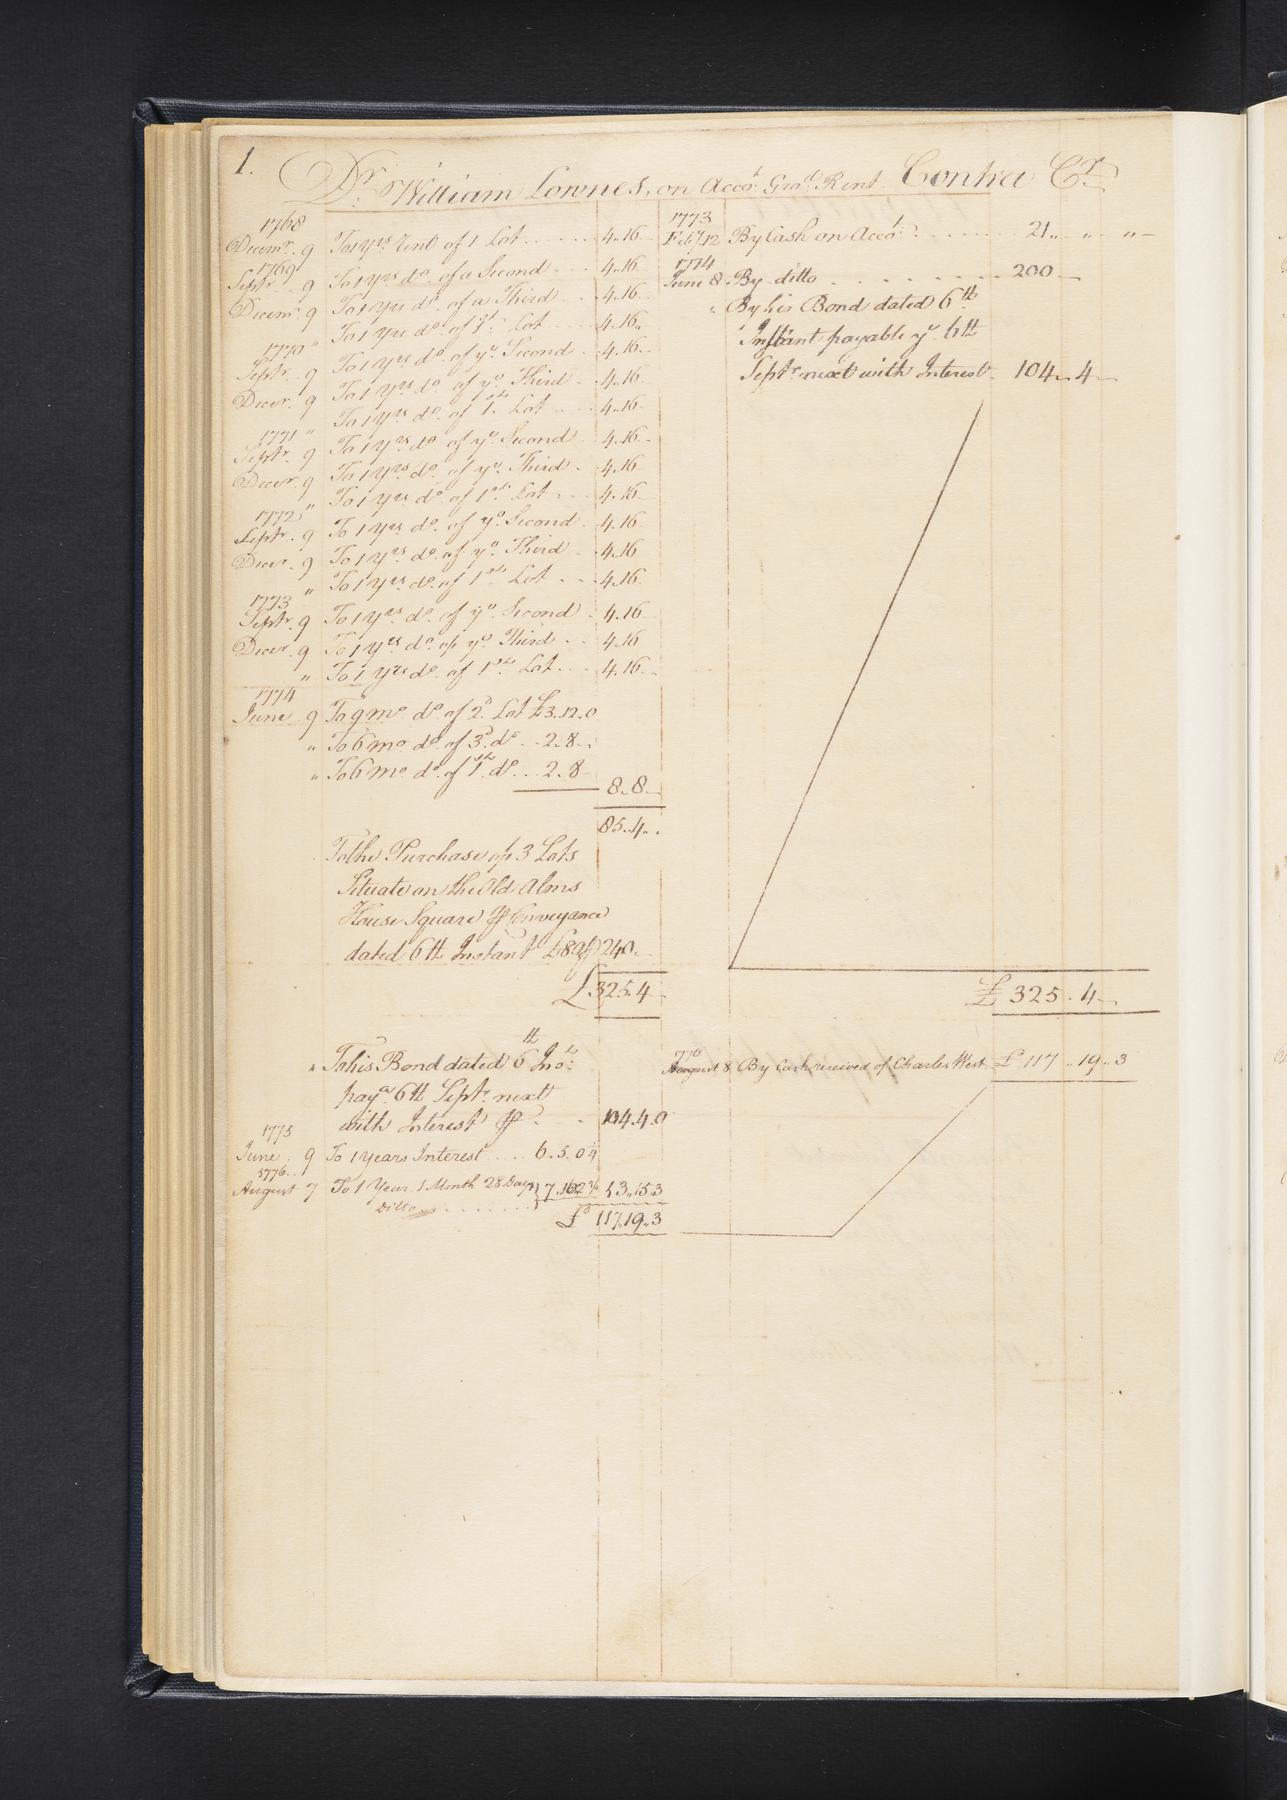 1.
Dr. William Lownes, on Acco.t Gro.d Rent Contra Cr.
1768
Decemr. 9 To 1 yrs Rent of 1 Lot 4..16
1769
Septr. 9 To 1 yrs do. of a Second 4..16
Decemr. 9 To 1 yrs do. of a Third 4..16
" To 1 yrs do. of 1st. Lot 4..16
1770
Septr. 9 To 1 yrs do. of ye. Second 4..16
Decer. 9 To 1 yrs do. of ye. Third 4..16
" To 1 yrs do. of 1st. Lot 4..16
1771
Septr. 9 To 1 yrs do. of ye. Second 4..16
Decer. 9 To 1 yrs do. of ye. Third 4..16
" To 1 yrs do. of 1st. Lot 4..16
1772
Septr. 9 To 1 yrs do. of ye. Second 4..16
Decer. 9 To 1 yrs do. of ye. Third 4..16
" To 1 yrs do. of 1st. Lot 4..16
1773
Septr. 9 To 1 yrs do. of ye. Second 4..16
Decer. 9 To 1 yrs do. of ye. Third 4..16
" To 1 yrs do. of 1st. Lot 4..16
1774
June 9 To 9 mo do. of 2d. Lot £3..12..0
" To 6 mo do. of 3d. do. 2..8
" To 6 mo do. of 1st. do. 2..8
8..8
85..4
To the Purchase of 3 Lots
Situate on the Old Alms
House Square Conveyance
dated 6th Instant £80 240
£325..4
" To his Bond dated 6th Inst.
paya. 6th Septr. next
with Interest 104..4..0
1775
June 9 To 1 years Interest 6..5..0¼
1776
August 7 To 1 Year 1 Month 28 Days 13..15..3
Ditto £ 117..19..3
1773
Feb.y 12 By Cash on Acco.t 21.. " .. "
1774
June 8 By ditto 200
" By his Bond dated 6th
Instant payable ye. 6th
Septr. next with Interest 104..4
£ 325..4
1776
August 8 By Cash received of Charles West £ 117..19..3